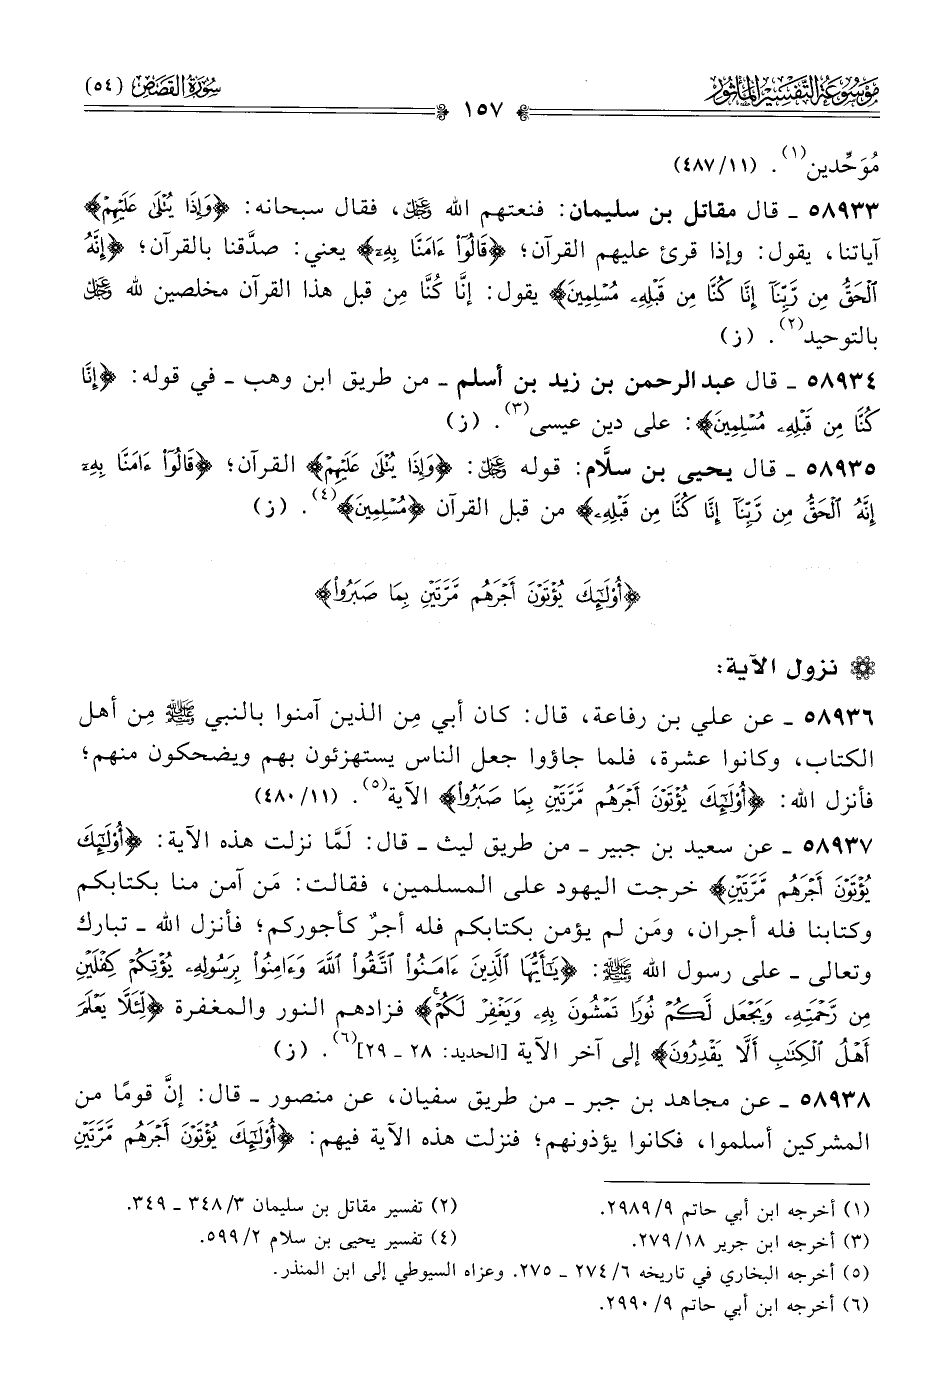 موسوعة التفسير المأثور
١٥٧
سورة القصص (٥٤)
مُوَحِّدين(١). (٤٨٧/١١)
٥٨٩٣٣ ـ قال مقاتل بن سليمان: فنعتهم الله ﷿، فقال سبحانه: ﴿وَإِذَا يُتْلَىٰ عَلَيْهِمْ﴾
آياتنا، يقول: وإذا قرئ عليهم القرآن؛ ﴿قَالُوٓا۟ ءَامَنَّا بِهِۦٓ﴾ يعني: صدَّقنا بالقرآن؛ ﴿إِنَّهُ
ٱلْحَقُّ مِن رَّبِّنَآ إِنَّا كُنَّا مِن قَبْلِهِۦ مُسْلِمِينَ﴾ يقول: إنَّا كُنَّا مِن قبل هذا القرآن مخلصين لله ﷿
بالتوحيد(٢). (ز)
٥٨٩٣٤ ـ قال عبدالرحمن بن زيد بن أسلم ـ من طريق ابن وهب ـ في قوله: ﴿إِنَّا
كُنَّا مِن قَبْلِهِۦ مُسْلِمِينَ﴾: على دين عيسى(٣). (ز)
٥٨٩٣٥ ـ قال يحيى بن سلَّام: قوله ﷿: ﴿وَإِذَا يُتْلَىٰ عَلَيْهِمْ﴾ القرآن؛ ﴿قَالُوٓا۟ ءَامَنَّا بِهِۦٓ
إِنَّهُ ٱلْحَقُّ مِن رَّبِّنَآ إِنَّا كُنَّا مِن قَبْلِهِۦ﴾ من قبل القرآن ﴿مُسْلِمِينَ﴾(٤). (ز)
﴿أُو۟لَـٰٓئِكَ يُؤْتَوْنَ أَجْرَهُم مَّرَّتَيْنِ بِمَا صَبَرُوا۟﴾
نزول الآية:
٥٨٩٣٦ ـ عن علي بن رفاعة، قال: كان أبي مِن الذين آمنوا بالنبي ﷺ مِن أهل
الكتاب، وكانوا عشرة، فلما جاؤوا جعل الناس يستهزئون بهم ويضحكون منهم؛
فأنزل الله: ﴿أُو۟لَـٰٓئِكَ يُؤْتَوْنَ أَجْرَهُم مَّرَّتَيْنِ بِمَا صَبَرُوا۟﴾ الآية(٥). (٤٨٠/١١)
٥٨٩٣٧ ـ عن سعيد بن جبير ـ من طريق ليث ـ قال: لَمَّا نزلت هذه الآية: ﴿أُو۟لَـٰٓئِكَ
يُؤْتَوْنَ أَجْرَهُم مَّرَّتَيْنِ﴾ خرجت اليهود على المسلمين، فقالت: مَن آمن منا بكتابكم
وكتابنا فله أجران، ومَن لم يؤمن بكتابكم فله أجرٌ كأجوركم؛ فأنزل الله ـ تبارك
وتعالى ـ على رسول الله ﷺ: ﴿يَـٰٓأَيُّهَا ٱلَّذِينَ ءَامَنُوا۟ ٱتَّقُوا۟ ٱللَّهَ وَءَامِنُوا۟ بِرَسُولِهِۦ يُؤْتِكُمْ كِفْلَيْنِ
مِن رَّحْمَتِهِۦ وَيَجْعَل لَّكُمْ نُورًا تَمْشُونَ بِهِۦ وَيَغْفِرْ لَكُمْ﴾ فزادهم النور والمغفرة ﴿لِّئَلَّا يَعْلَمَ
أَهْلُ ٱلْكِتَـٰبِ أَلَّا يَقْدِرُونَ﴾ إلى آخر الآية [الحديد: ٢٨ ـ ٢٩](٦). (ز)
٥٨٩٣٨ ـ عن مجاهد بن جبر ـ من طريق سفيان، عن منصور ـ قال: إنَّ قومًا من
المشركين أسلموا، فكانوا يؤذونهم؛ فنزلت هذه الآية فيهم: ﴿أُو۟لَـٰٓئِكَ يُؤْتَوْنَ أَجْرَهُم مَّرَّتَيْنِ
(١) أخرجه ابن أبي حاتم ٢٩٨٩/٩.
(٢) تفسير مقاتل بن سليمان ٣٤٨/٣ ـ ٣٤٩.
(٣) أخرجه ابن جرير ٢٧٩/١٨.
(٤) تفسير يحيى بن سلام ٥٩٩/٢.
(٥) أخرجه البخاري في تاريخه ٢٧٤/٦ ـ ٢٧٥. وعزاه السيوطي إلى ابن المنذر.
(٦) أخرجه ابن أبي حاتم ٢٩٩٠/٩.